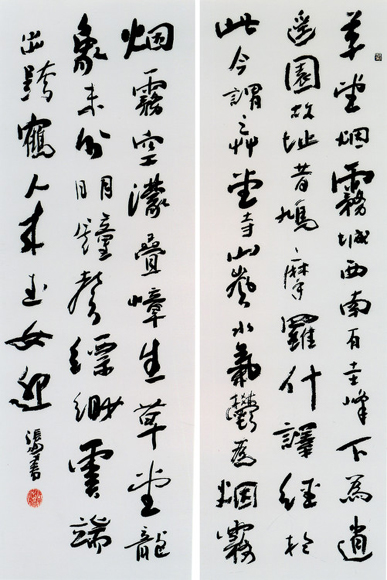 草堂烟霧城西南有圭峰下為逍
遥園故址昔鳩摩羅什譯經於
此今謂之艸堂寺山嵐水氣鬱為烟霧
烟霧空濛疊嶂生草堂龍
象未分明鐘聲縹緲雲端
出跨鶴人來玉女迎 張書